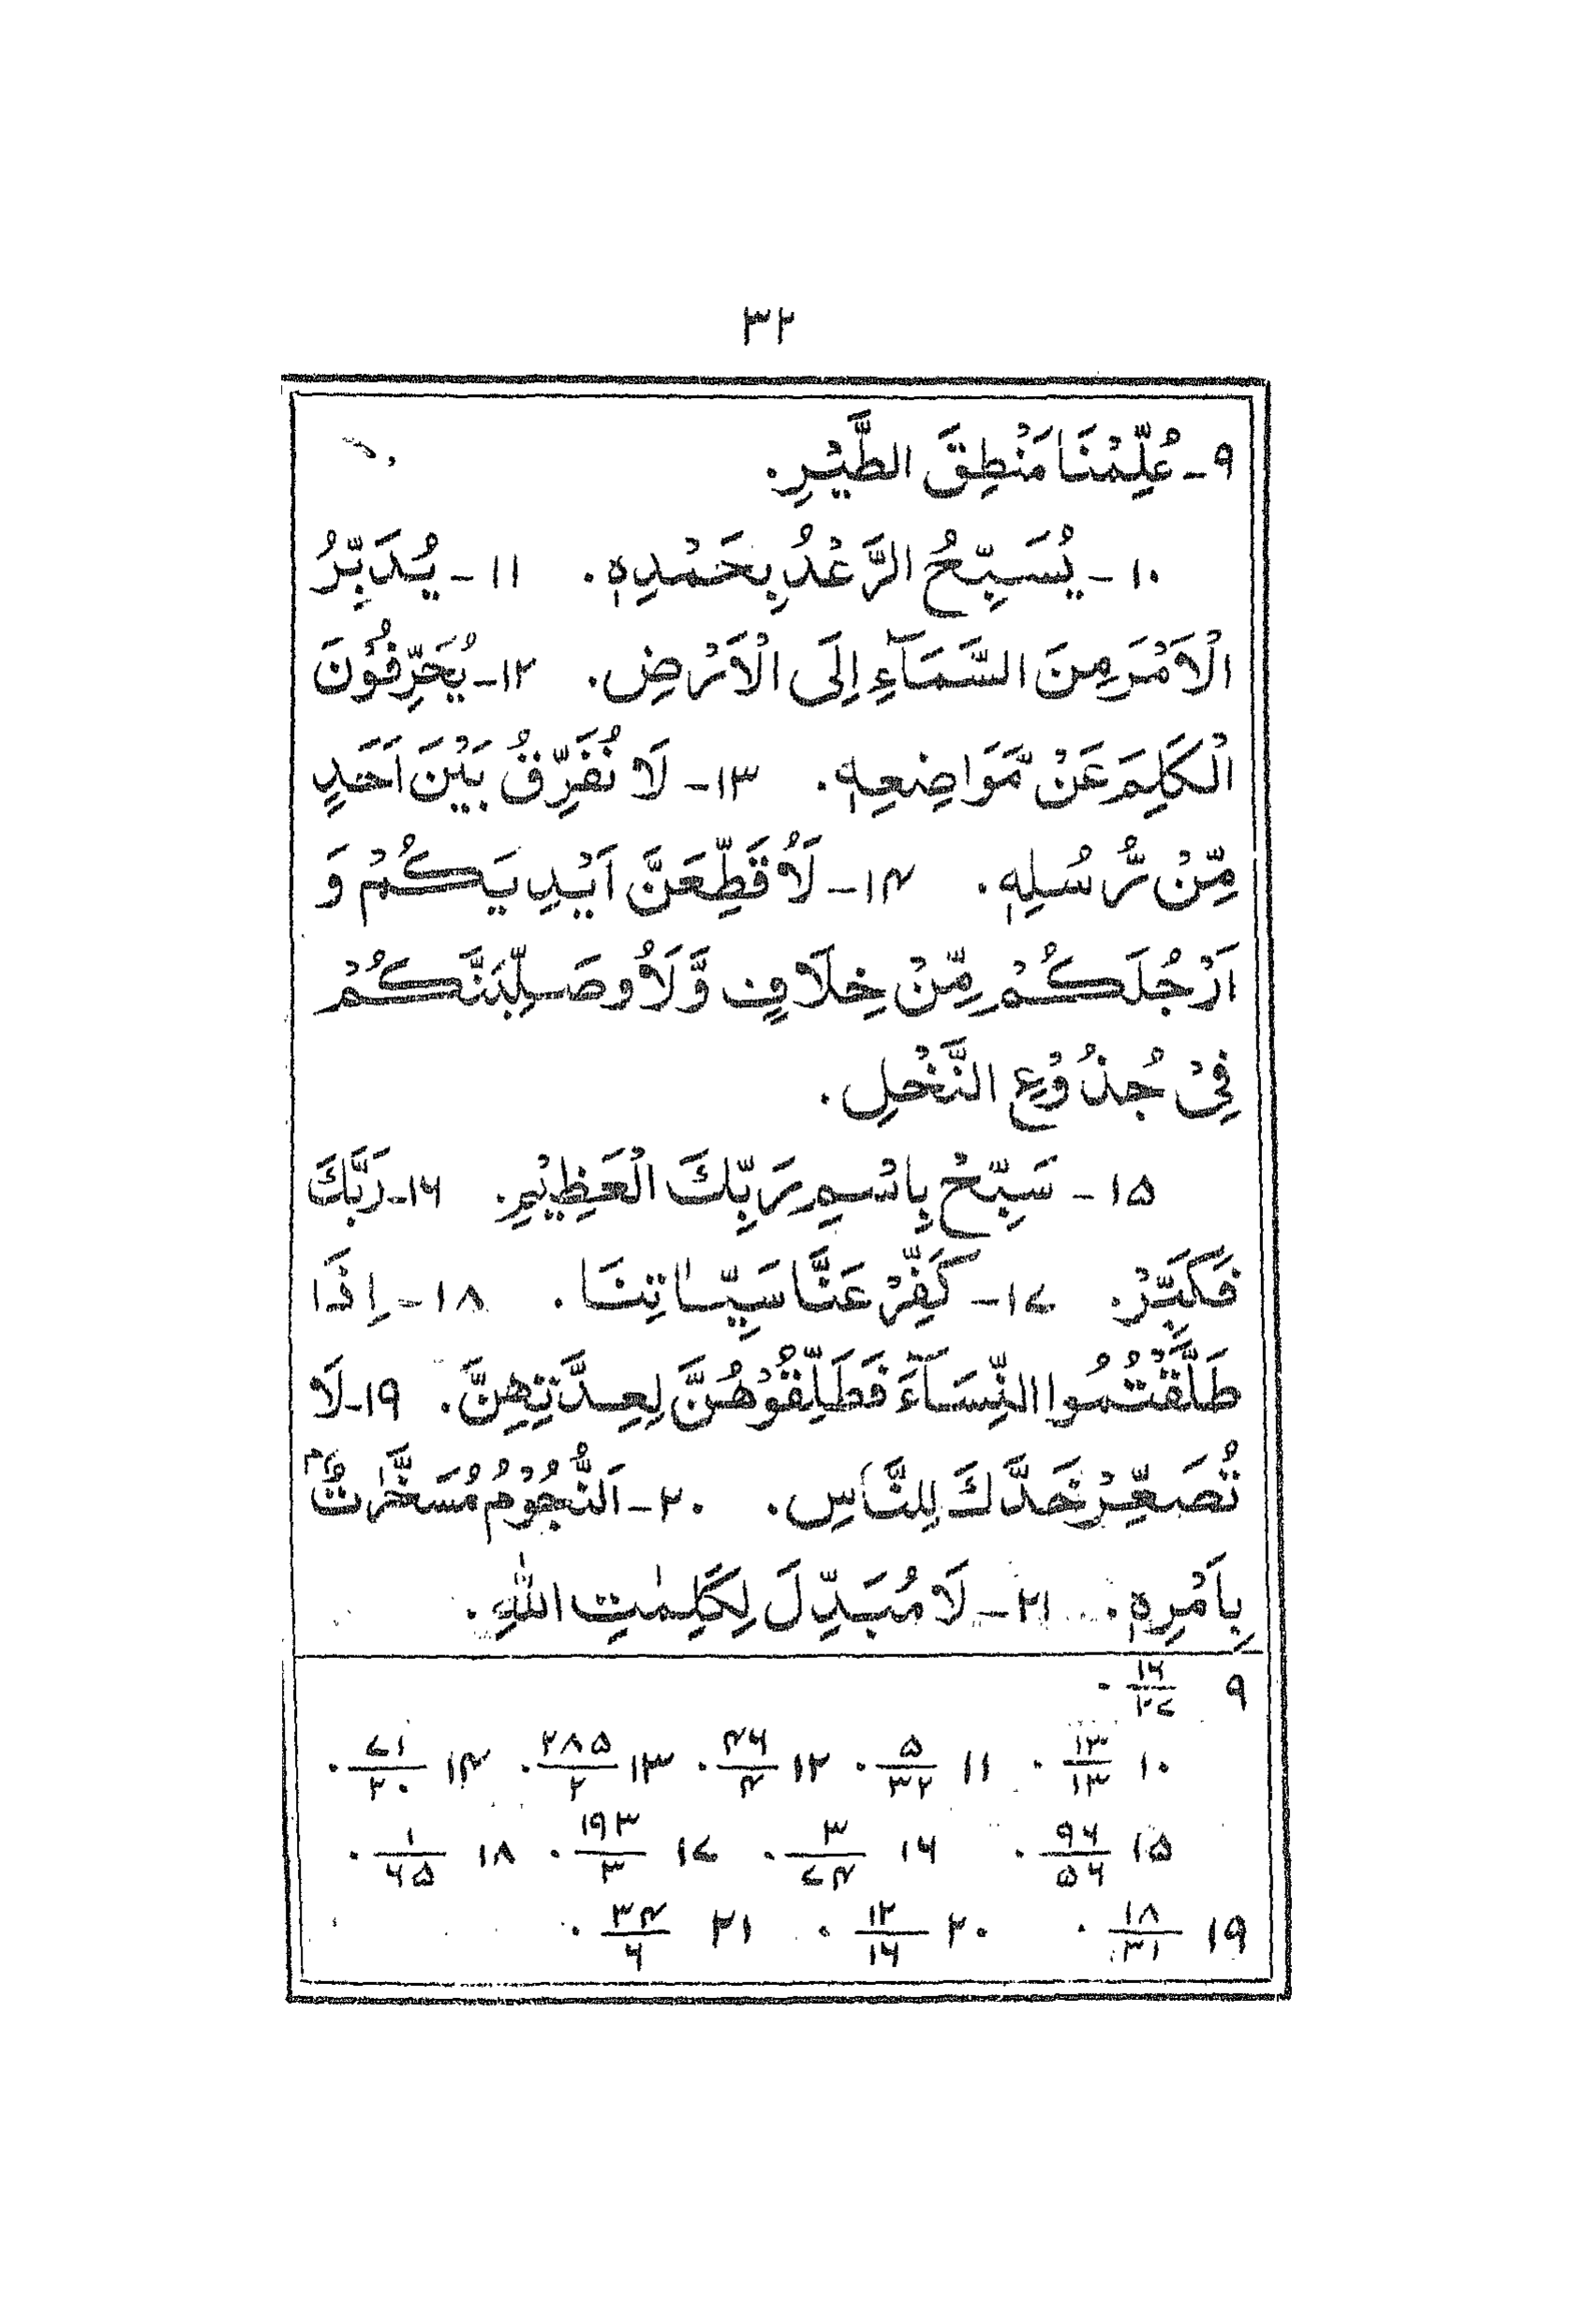 ۳۲
۹- عُلِّمْنَا مَنْطِقَ الطَّيْرِ.
۱۰- يُسَبِّحُ الرَّعْدُ بِحَمْدِهٖ. ۱۱- يُدَبِّرُ
الْاَمْرَ مِنَ السَّمَآءِ اِلَى الْاَرْضِ. ۱۲- يُحَرِّفُوْنَ
الْكَلِمَ عَنْ مَّوَاضِعِهٖ. ۱۳- لَا نُفَرِّقُ بَيْنَ اَحَدٍ
مِّنْ رُّسُلِهٖ. ۱۴- لَاُقَطِّعَنَّ اَيْدِيَكُمْ وَ
اَرْجُلَكُمْ مِّنْ خِلَافٍ وَّلَاُوصَلِّبَنَّكُمْ
فِىْ جُذُوْعِ النَّخْلِ.
۱۵- سَبِّحْ بِاسْمِ رَبِّكَ الْعَظِيْمِ. ۱۶- رَبَّكَ
فَكَبِّرْ. ۱۷- كَفِّرْ عَنَّا سَيِّـاٰتِنَا. ۱۸- اِذَا
طَلَّقْتُمُوا النِّسَآءَ فَطَلِّقُوْهُنَّ لِعِدَّتِهِنَّ. ۱۹- لَا
تُصَعِّرْ خَدَّكَ لِلنَّاسِ. ۲۰- اَلنُّجُوْمُ مُسَخَّرٰتٌۢ
بِاَمْرِهٖ. ۲۱- لَا مُبَدِّلَ لِكَلِمٰتِ اللّٰهِ.
۹ ۱۶/۲۷.
۱۰ ۱۳/۱۳. ۱۱ ۵/۳۲. ۱۲ ۴۶/۴. ۱۳ ۲۸۵/۲. ۱۴ ۷۱/۲۰.
۱۵ ۹۶/۵۶. ۱۶ ۳/۷۴. ۱۷ ۱۹۳/۳. ۱۸ ۱/۶۵.
۱۹ ۱۸/۳۱. ۲۰ ۱۲/۱۶. ۲۱ ۳۴/۶.